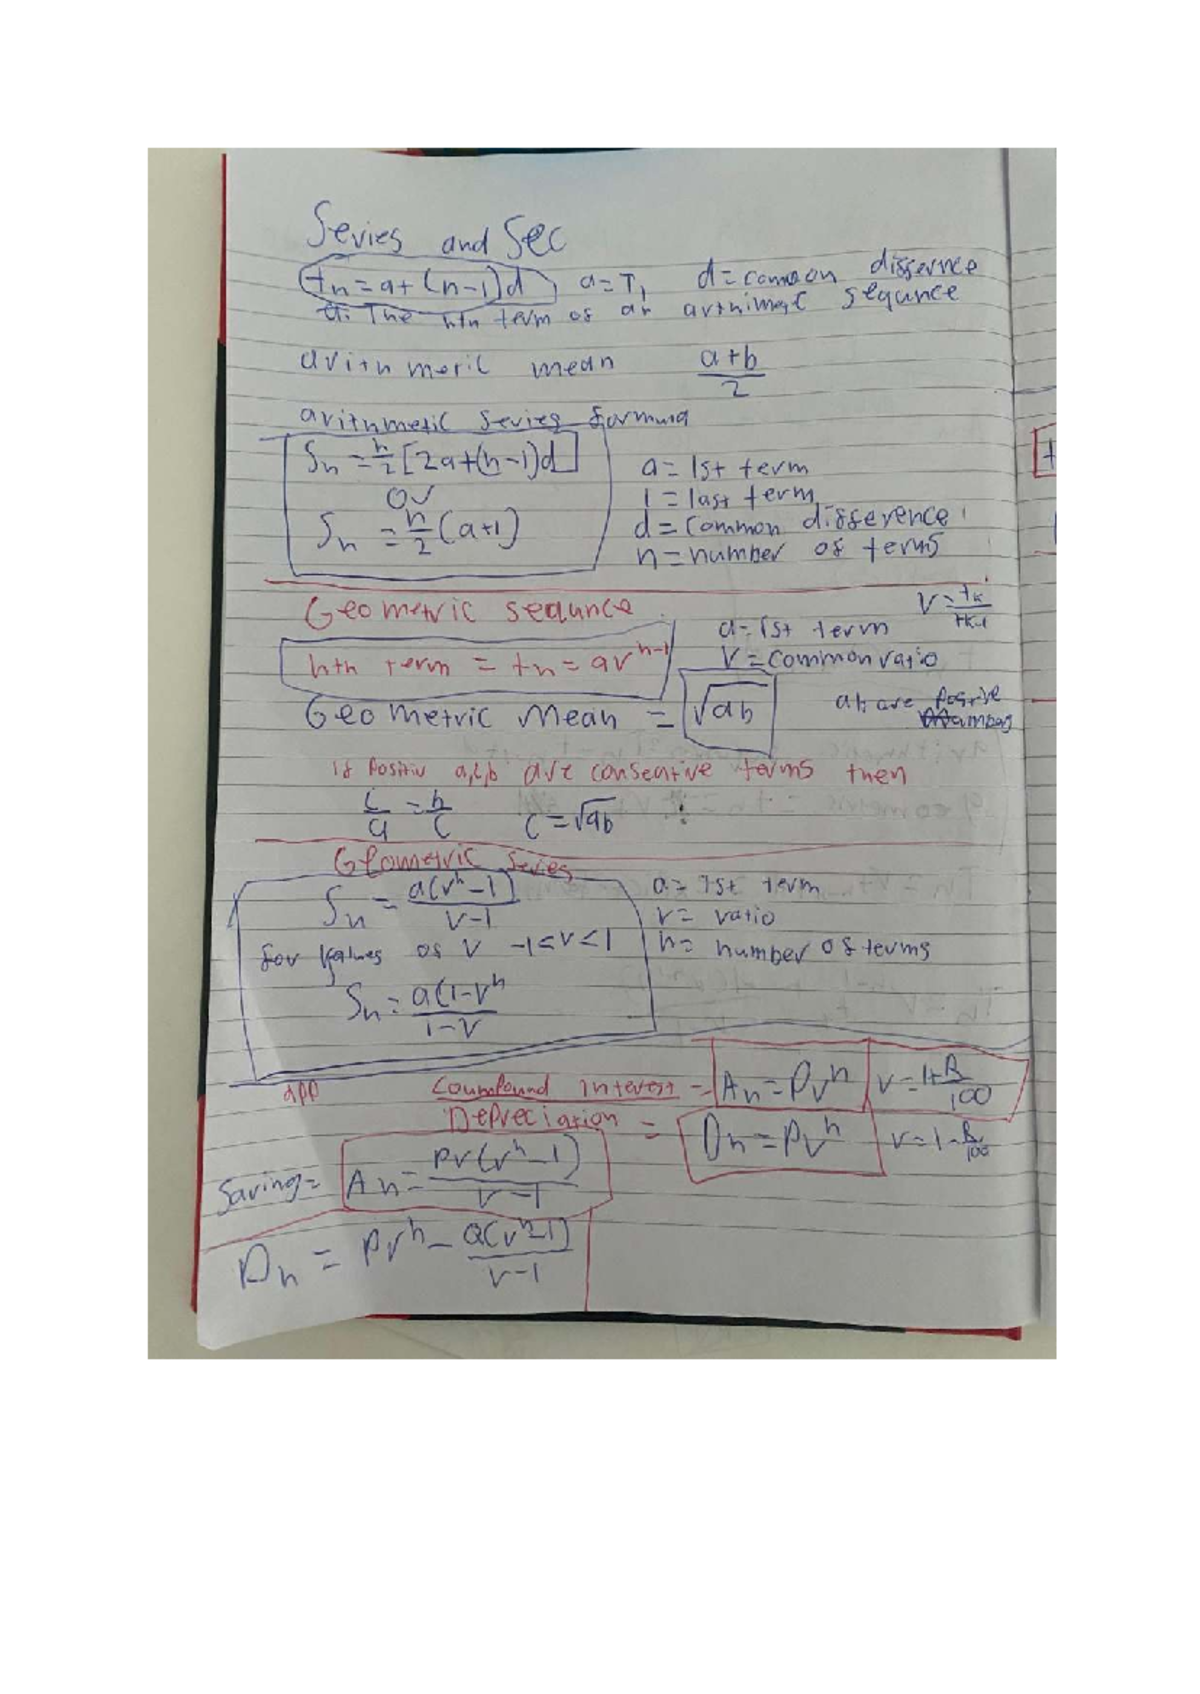 Series and Sec
tn = a + (n-1)d a = T1 d = common difference
The nth term of an arthimetc sequnce
arithmeric mean a+b/2
arithmetic series formula
Sn = n/2 [2a+(n-1)d] a = 1st term
or l = last term
Sn = n/2 (a+l) d = common difference
n = number of terms
Geometric sequnce r = tk/tk-1
a = 1st term
nth term = tn = ar^n-1 r = common ratio
Geometric Mean = √ab ab are positive
If Positiv a,c,b are consecative terms then
c/a = b/c c = √ab
Geometric Series
Sn = a(r^n-1)/r-1 a = 1st term
r = ratio
for values of r -1<r<1 n = number of terms
Sn = a(1-r^n/1-r
app Coumpound interest = An = Pr^n r = 1+R/100
Depreciation = Dn = Pr^n r = 1-R/100
Saving = An = Pr(r^n-1)/r-1
An = Pr^n - Q(r^n-1)/r-1